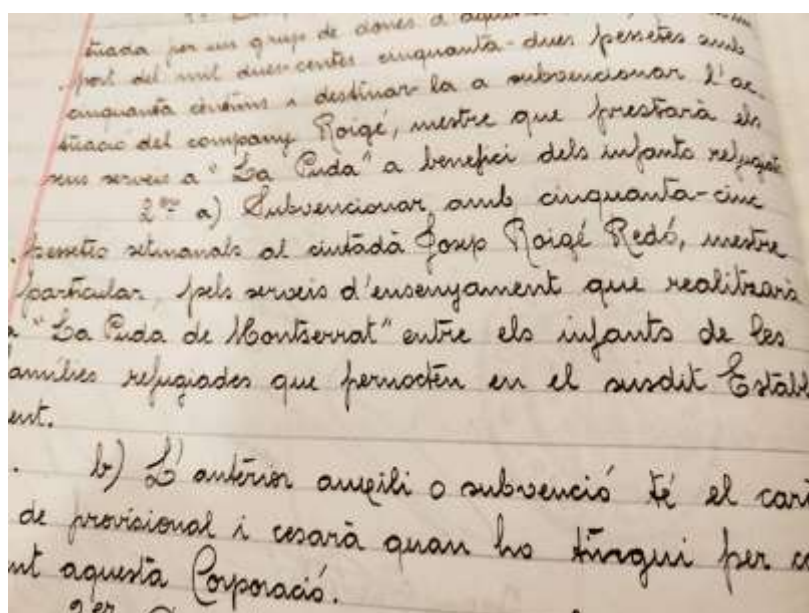 tuada per un grup de dones d'aque
port del mil dues-centes cinquanta-dues pessetes amb
cinquanta cèntims i destinar-la a subvencionar l'ac
tuació del company Roigé, mestre que prestarà els
seus serveis a "La Puda" a benefici dels infants refugiats
2on a) Subvencionar amb cinquanta-cinc
pessetes setmanals al ciutadà Josep Roigé Redó, mestre
particular, pels serveis d'ensenyament que realitzarà
a "La Puda de Montserrat" entre els infants de les
famílies refugiades que pernoctén en el susdit Establ
ent.
b) L'antèrior auxili o subvenció té el car
de provisional i cesarà quan ho tingui per co
nt aquesta Corporació.
3er